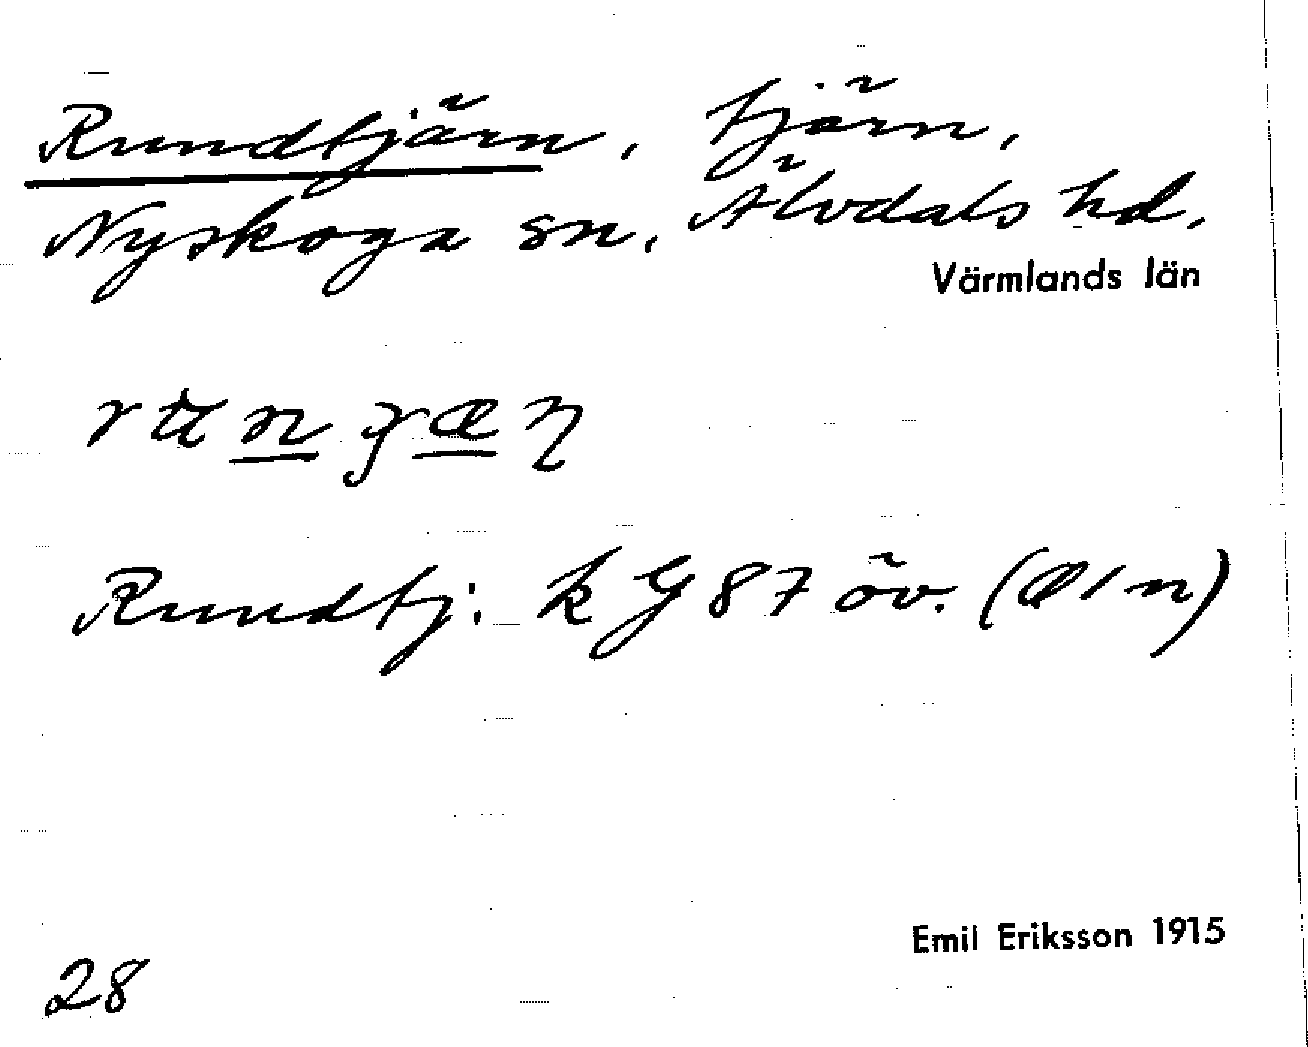 Rundtjärn, tjärn,
Nyskoga sn. Älvdals hd.
Värmlands län
Rundtj. k G 87 öv. (Æ/n)
Emil Eriksson 1915
28